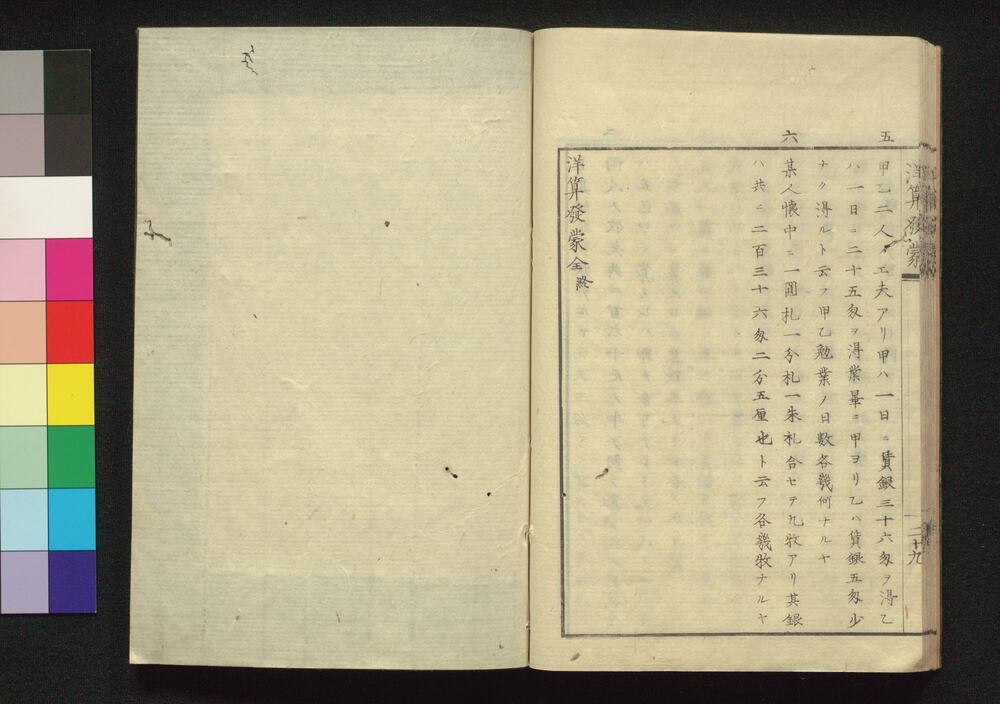 五 甲乙二人ノ工夫アリ甲ハ一日ニ賃銀三十六匁ヲ得乙
ハ一日ニ二十五匁ヲ得業畢ニ甲ヨリ乙ハ賃銀五匁少
ナク得ルト云フ甲乙勉業ノ日數各幾何ナルヤ
六 某人懷中ニ一圓札一分札一朱札合セテ九牧アリ其銀
ハ共ニ二百三十六匁二分五厘也ト云フ各幾牧ナルヤ
洋算發蒙全終
洋算發蒙
二十九